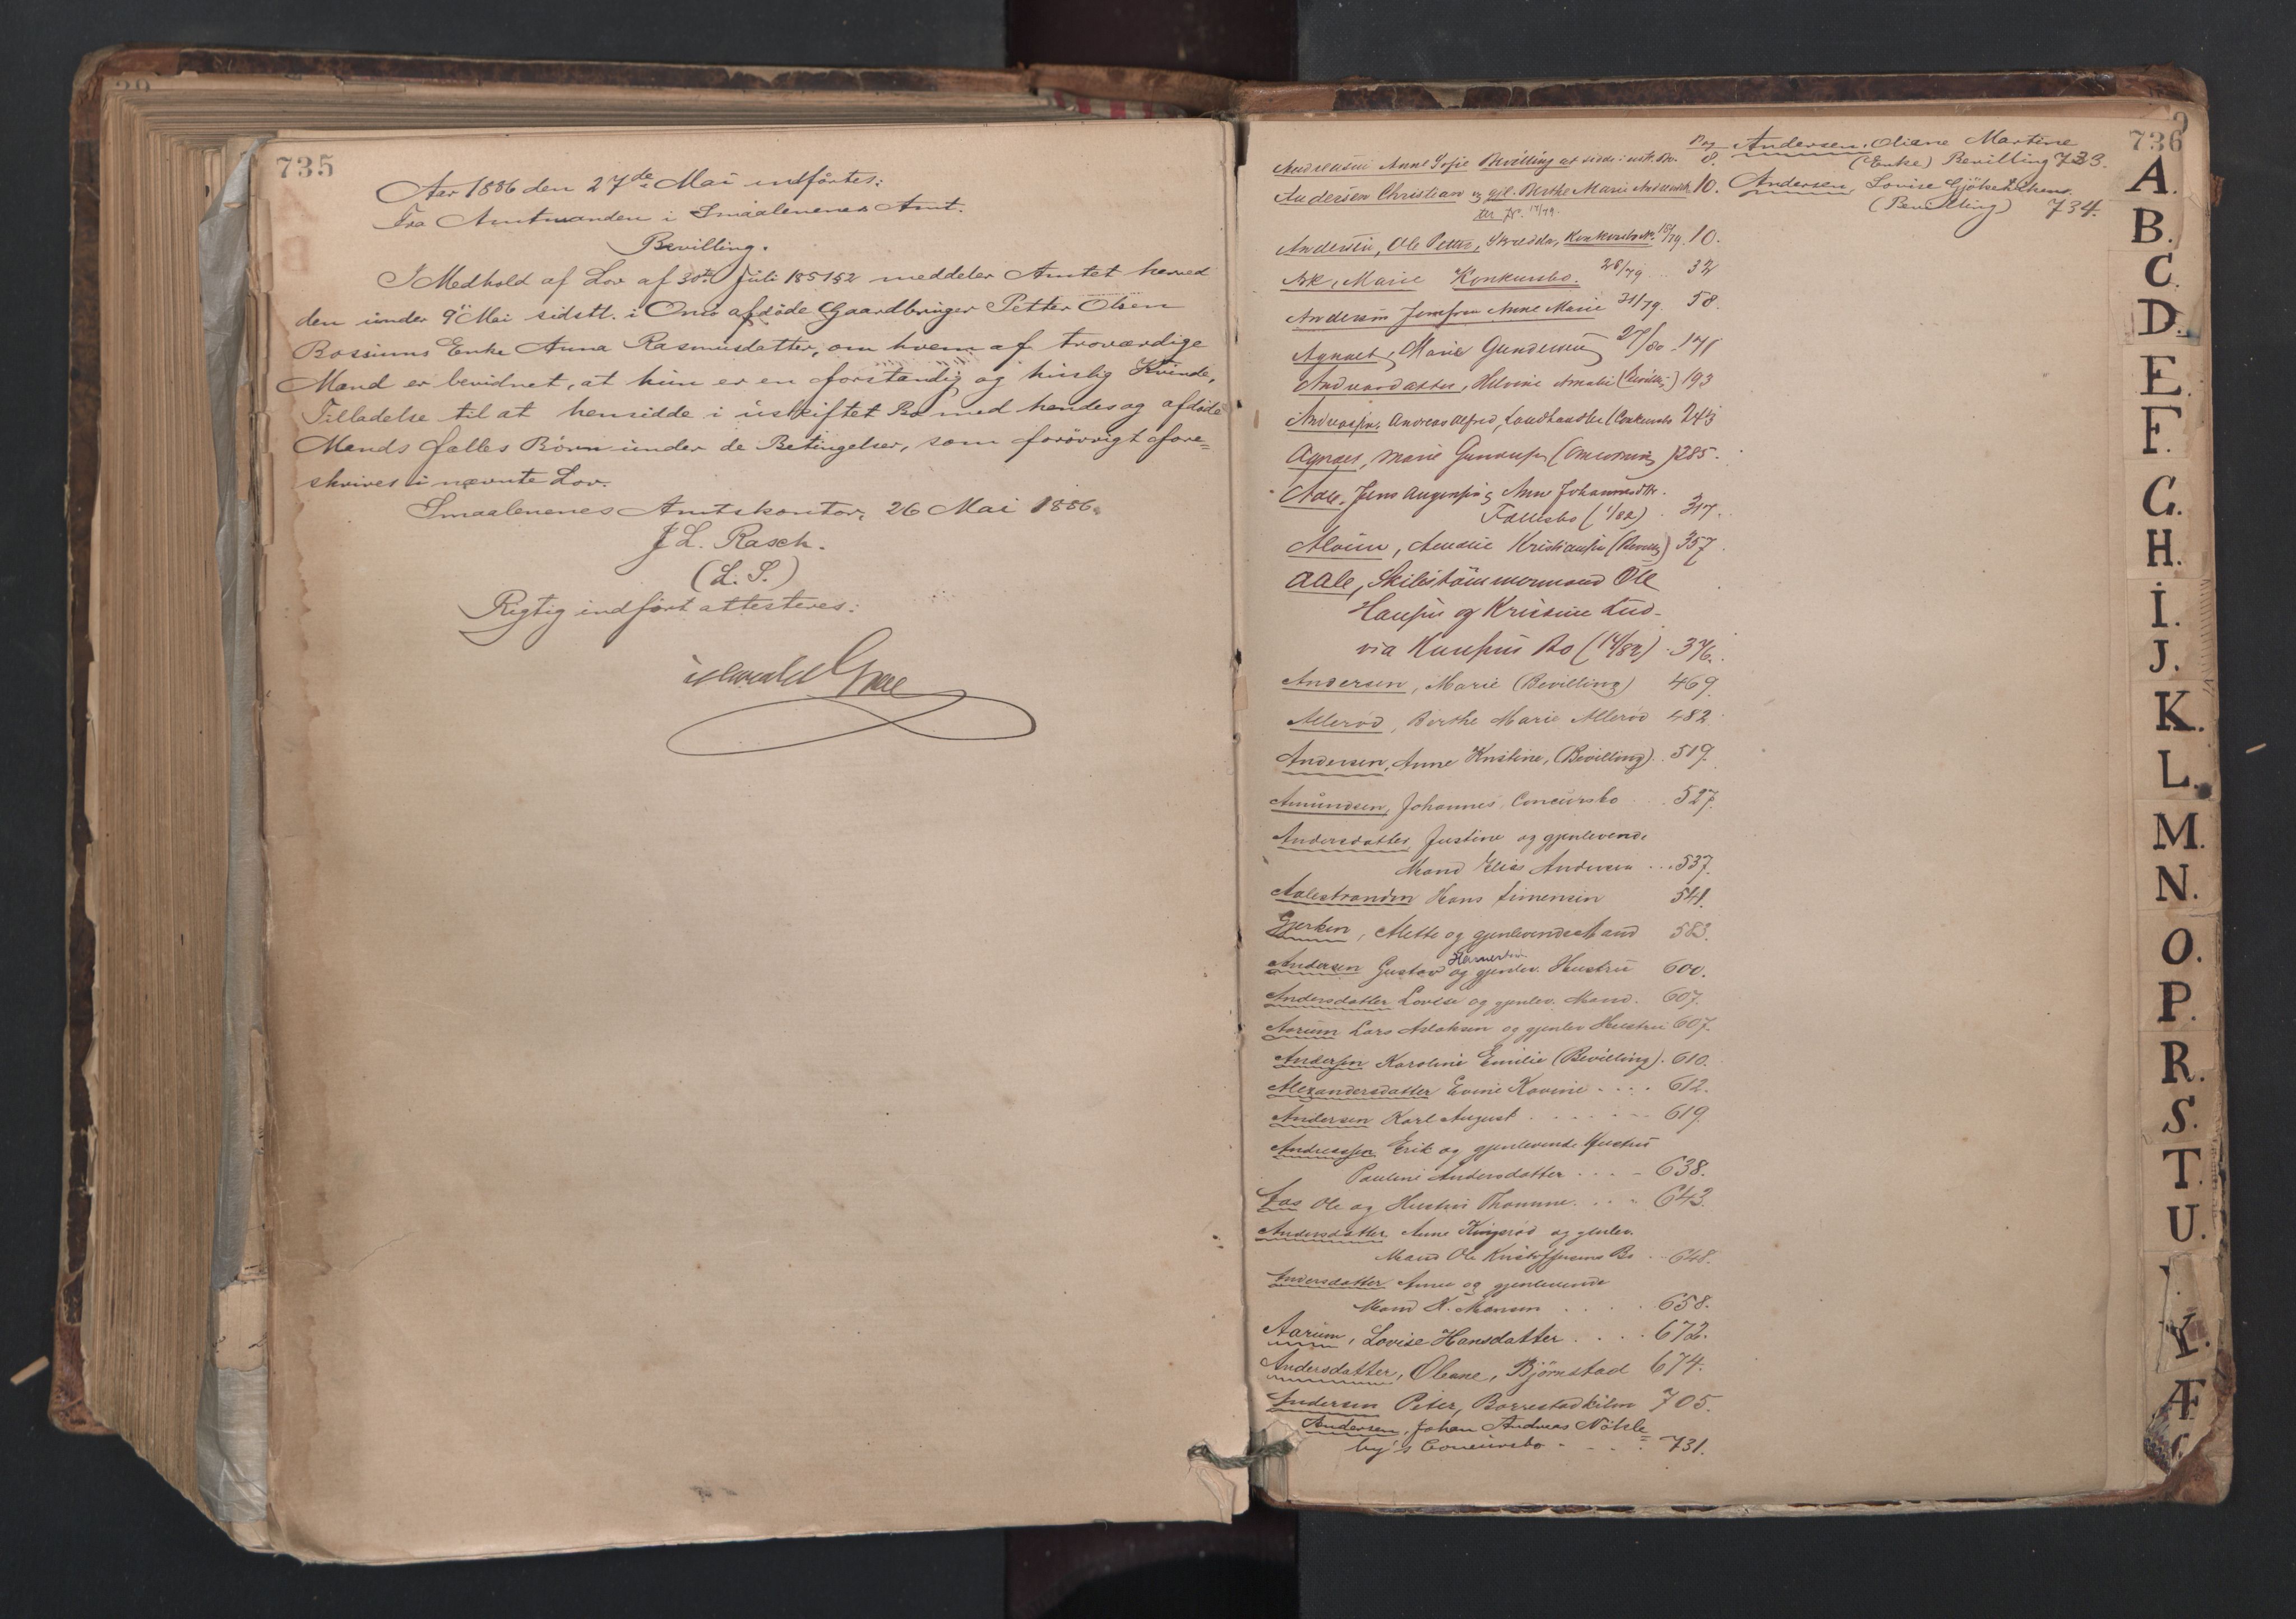 735
Aar 1886 den 27de Mai indførtes:
Fra Amtmanden i Smaalenenes Amt.
Bevilling.
I Medhold af Lov af 30te Juli 1851 § 2 meddeler Amtet herved
den under 9 Mai sidstl. i Onsø afdøde Gaardbruger Petter Olsen
Rossiums Enke Anna Rasmusdatter, om hvem af troværdige
Mænd er bevidnet, at hun er en forstandig og huslig Kvinde,
Tilladelse til at hensidde i uskiftet Bo med hendes og afdøde
Mands fælles Børn under de Betingelser, som forøvrigt fore=
skrives i nævnte Lov.
Smaalenenes Amtskontor, 26 Mai 1886.
J L. Rasch.
(L. S.)
Rigtig indført attesteres:
736
Pag
Anne Sofie Bevilling at sidde i uskft. Bo. 8.
Andersen Christian og gjl. Berthe Marie 10.
Andersen, Ole Petter, Konkursbo No. 10.
Ask, Marie Konkursbo. 28/79 32
Andersen Jomfru Anne Marie 31/79. 58.
Agnæs, Marie Gundersen 27/80 171
Helvine Amalie (Bevilling) 193
Andreassen, Andreas Alfred, Landhandler (Conkursbo 243
Agnæs, Marie Gundersen 285.
Aale, Jens Augensen og Anne Johannesdtr.
Fællesbo (1/82) . 317.
Amalie Kristiansen (Bevillg) 357
Aale, Skibstømmermand Ole
Hansen og Kristine Lud-
via Bo (14/82) . 376.
Andersen, Marie (Bevilling) 469.
Allerød, Berthe Marie Allerød 482
Andersen, Anne Kristine, (Bevilling) . 519.
Amundsen, Johannes, Concursbo . . 527.
Andersdatter, Justine og gjenlevende
Mand Elias Andersen . . . 537.
Aalestranden Hans Simensen 541.
Mette og gjenlevende Mand 583.
Andersen Gustav og gjenlev. Hustru 600.
Andersdatter Lovise og gjenlev. Mand. 607.
Aarum Lars Aslaksen og gjenlev Hustru 607.
Andersen Karoline Emilie (Bevilling). 610.
Alexandersdatter Evine Kavine . . . . 612.
Andersen Karl August . . . . . . 619.
Andreassen Erik og gjenlevende Hustru
Pauline Andersdatter . . . 638.
Aas Ole og Hustru Thomine. . . . 643.
Andersdatter Anne og gjenlev.
Mand Ole Kristoffersens Bo . . 648.
Andersdatter Anne og gjenlevende
Mand H. Hansen . . . . 658.
Aarum, Lovise Hansdatter . . . . 672.
Andersdatter, Oleane, Bjørnstad 674.
Andersen Peter, Borrestadkilen 705.
Andersen, Johan Andreas Nøkle=
by's Concursbo . . . . 731.
Andersen, Oliane Martine
(Enke) Bevilling 733.
Andersen, Lovise
(Bevilling) 734.
A.
B.
C.
D.
E.
F.
G.
H.
I.
J.
K.
L.
M.
N.
O.
P.
R.
S.
T.
U.
Y.
Æ